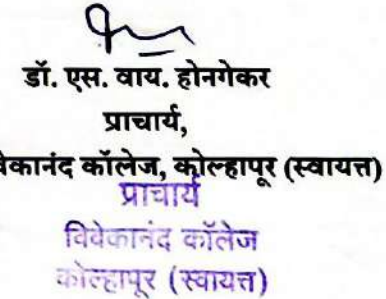 डॉ. एस. वाय. होनगेकर
प्राचार्य,
वेकानंद कॉलेज, कोल्हापूर (स्वायत्त)
प्राचार्य
विवेकानंद कॉलेज
कोल्हापूर (स्वायत्त)